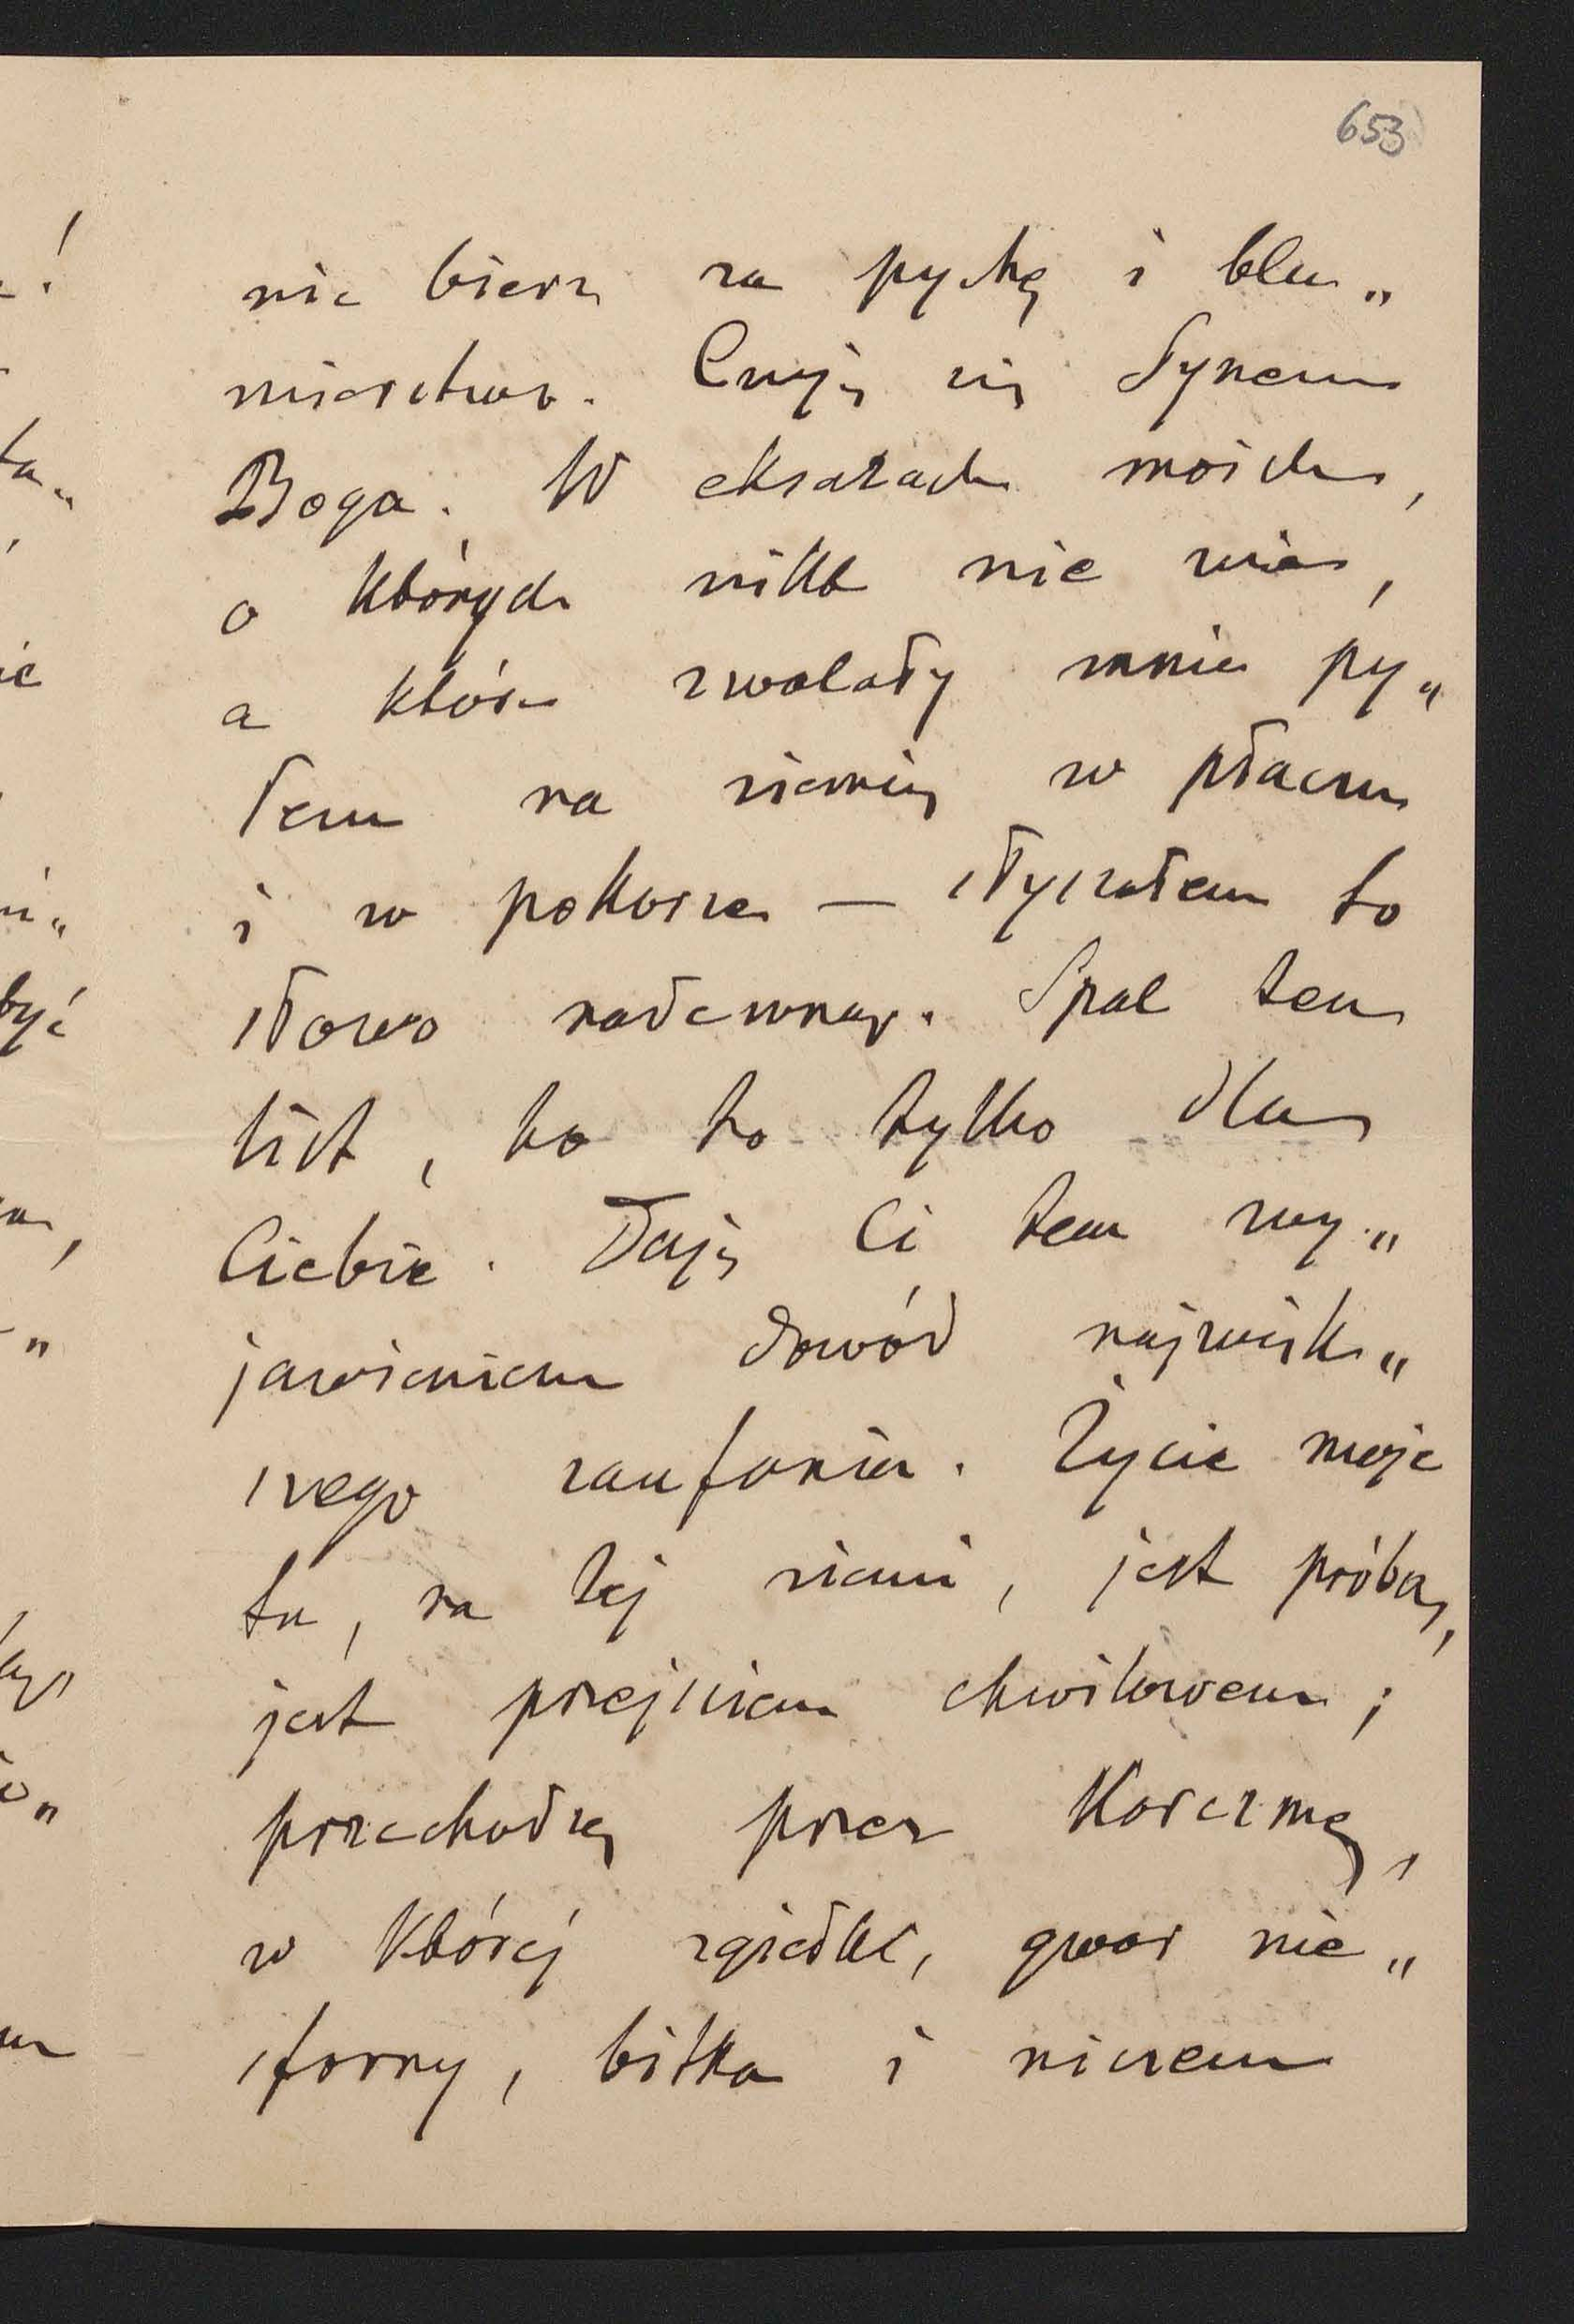 653
nie bierz za pychę i blu„
źnierstwo. Czuję się Synem
Boga. W ekstazach moich,
o których nikt nie wie,
a które zwalały mnie py„
łem na ziemię w płaczu
i w pokorze — słyszałem to
słowo nadewnąr. Spal ten
list, bo to tylko dla
Ciebie. Daję Ci tem wy„
jawieniem dowód najwięk„
szego zaufania. Życie moje
tu, na tej ziemi, jest próbą,
jest przejściem chwilowem;
przechodzę przez Karczmę,
w której zgiełk, gwar nie„
sforny, bitka i niczem